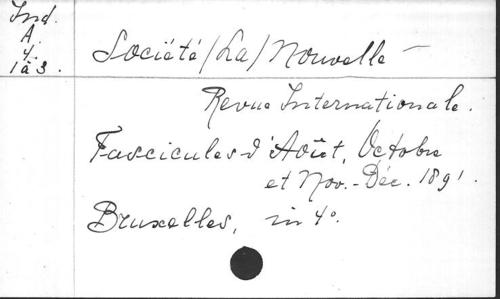 Ind.
A.
4.
1 à 3.
Société (La) Nouvelle –
Revue Internationale.
Fascicules d'Août, Octobre
et Nov.-Déc. 1891.
Bruxelles, in 4°.